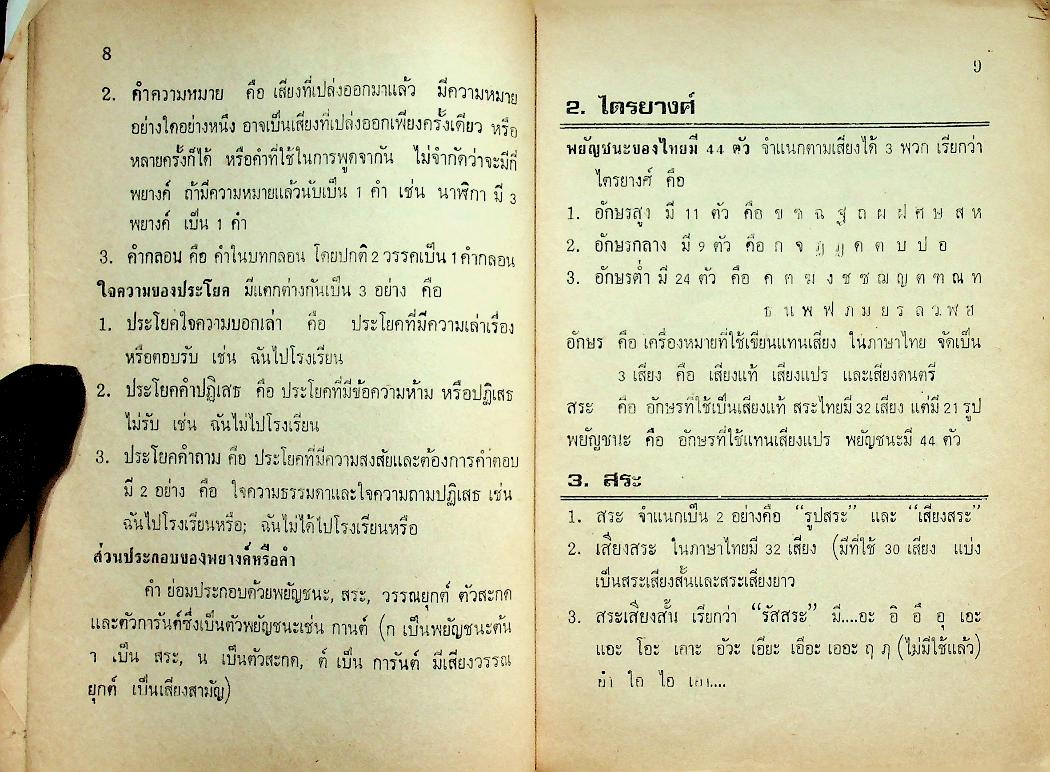 8
2. คำความหมาย คือ เสียงที่เปล่งออกมาแล้ว มีความหมาย
อย่างใดอย่างหนึ่ง อาจเป็นเสียงที่เปล่งออกเพียงครั้งเดียว หรือ
หลายครั้งก็ได้ หรือคำที่ใช้ในการพูดจากัน ไม่จำกัดว่าจะมีกี่
พยางค์ ถ้ามีความหมายแล้วนับเป็น 1 คำ เช่น นาฬิกา มี 3
พยางค์ เป็น 1 คำ
3. คำกลอน คือ คำในบทกลอน โดยปกติ 2 วรรคเป็น 1 คำกลอน
ใจความของประโยค มีแตกต่างกันเป็น 3 อย่าง คือ
1. ประโยคใจความบอกเล่า คือ ประโยคที่มีความเล่าเรื่อง
หรือตอบรับ เช่น ฉันไปโรงเรียน
2. ประโยคคำปฏิเสธ คือ ประโยคที่มีข้อความห้าม หรือปฏิเสธ
ไม่รับ เช่น ฉันไม่ไปโรงเรียน
3. ประโยคคำถาม คือ ประโยคที่มีความสงสัยและต้องการคำตอบ
มี 2 อย่าง คือ ใจความธรรมดาและใจความถามปฏิเสธ เช่น
ฉันไปโรงเรียนหรือ; ฉันไม่ได้ไปโรงเรียนหรือ
ส่วนประกอบของพยางค์หรือคำ
คำ ย่อมประกอบด้วยพยัญชนะ, สระ, วรรณยุกต์ ตัวสะกด
และตัวการันต์ซึ่งเป็นตัวพยัญชนะเช่น กานต์ (ก เป็นพยัญชนะต้น
า เป็น สระ, น เป็นตัวสะกด, ต์ เป็น การันต์ มีเสียงวรรณ
ยุกต์ เป็นเสียงสามัญ)
9
2. ไตรยางศ์
พยัญชนะของไทยมี 44 ตัว จำแนกตามเสียงได้ 3 พวก เรียกว่า
ไตรยางศ์ คือ
1. อักษรสูง มี 11 ตัว คือ ข ฃ ฉ ฐ ถ ผ ฝ ศ ษ ส ห
2. อักษรกลาง มี 9 ตัว คือ ก จ ฎ ฏ ด ต บ ป อ
3. อักษรต่ำ มี 24 ตัว คือ ค ฅ ฆ ง ช ซ ฌ ญ ฑ ฒ ณ ท
ธ น พ ฟ ภ ม ย ร ล ว ฬ ฮ
อักษร คือ เครื่องหมายที่ใช้เขียนแทนเสียง ในภาษาไทย จัดเป็น
3 เสียง คือ เสียงแท้ เสียงแปร และเสียงดนตรี
สระ คือ อักษรที่ใช้เป็นเสียงแท้ สระไทยมี 32 เสียง แต่มี 21 รูป
พยัญชนะ คือ อักษรที่ใช้แทนเสียงแปร พยัญชนะมี 44 ตัว
3. สระ
1. สระ จำแนกเป็น 2 อย่างคือ “รูปสระ” และ “เสียงสระ”
2. เสียงสระ ในภาษาไทยมี 32 เสียง (มีที่ใช้ 30 เสียง แบ่ง
เป็นสระเสียงสั้นและสระเสียงยาว
3. สระเสียงสั้น เรียกว่า “รัสสระ” มี....อะ อิ อึ อุ เอะ
แอะ โอะ เอาะ อัวะ เอียะ เอือะ เออะ ฤ ฦ (ไม่มีใช้แล้ว)
อำ ใอ ไอ เอา....